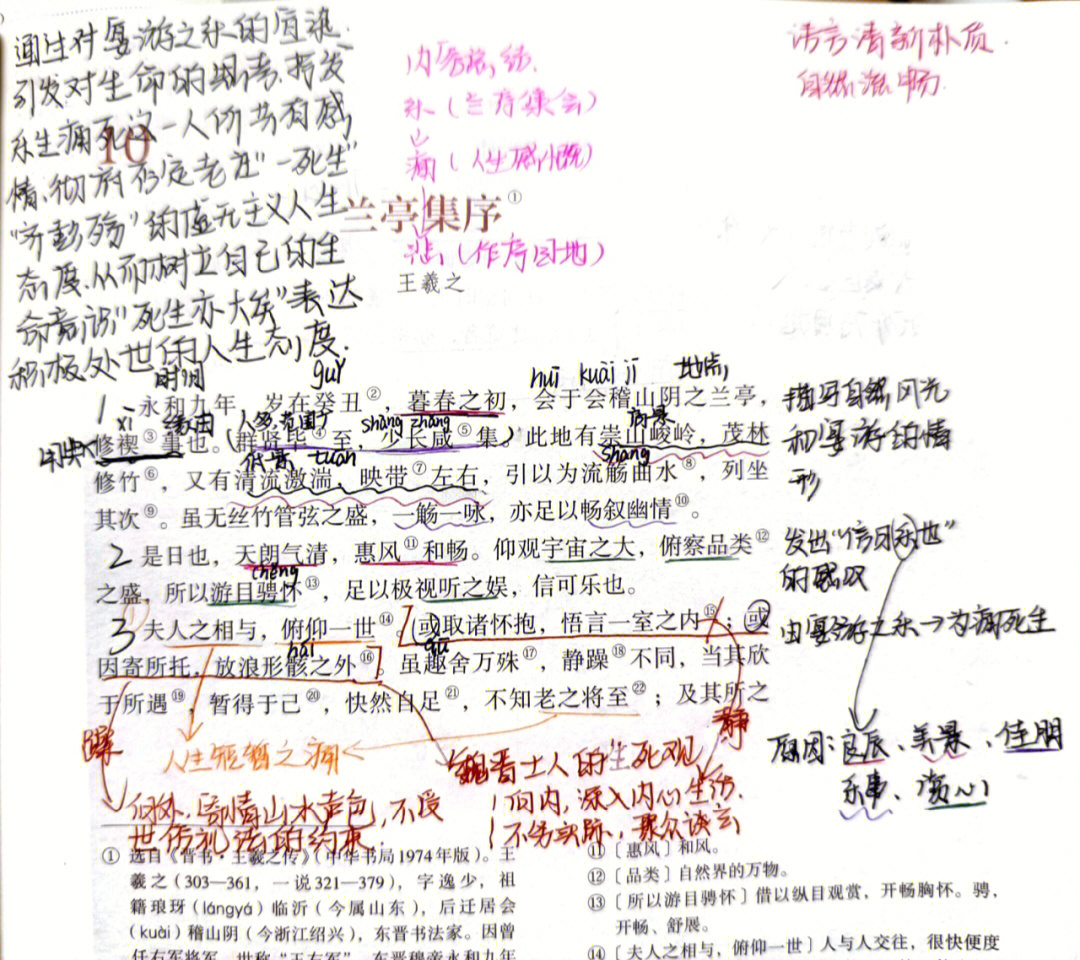 通过对宴游之乐的渲染.
引发对生命的思考.抒发
乐生痛死这一人们共有感
情,彻底否定老庄"一死生"
"齐彭殇"的虚无主义人生
态度.从而树立自己的生
命意识"死生亦大矣"表达
积极处世的人生态度.
内容总结.
乐(兰亭集会)
痛(人生感慨)
悲(作序目的)
语言清新朴质.
自然流畅.
10
兰亭集序①
王羲之
时间 guǐ huī kuài jī 地点
1 永和九年,岁在癸丑②,暮春之初,会于会稽山阴之兰亭,
xì 缘由 人多,范围广 shào zhǎng 高景
修禊③事也。(群贤毕④至,少长咸⑤集)此地有崇山峻岭,茂林
低景 tuān shāng
修竹⑥,又有清流激湍,映带⑦左右,引以为流觞曲水⑧,列坐
其次⑨。虽无丝竹管弦之盛,一觞一咏,亦足以畅叙幽情⑩。
描写自然风光
和宴游的情
形
2 是日也,天朗气清,惠风⑪和畅。仰观宇宙之大,俯察品类⑫
chěng
之盛,所以游目骋怀⑬,足以极视听之娱,信可乐也。
发出"信可乐也"
的感叹
3 夫人之相与,俯仰一世⑭。(或取诸怀抱,悟言一室之内⑮;或
hái qū
因寄所托,放浪形骸之外⑯。虽趣舍万殊⑰,静躁⑱不同,当其欣
于所遇⑲,暂得于己⑳,快然自足㉑,不知老之将至㉒;及其所之
由宴游之乐→为痛死生
原因:良辰、美景、佳朋
乐事、赏心
躁
静
人生短暂之痛
向外,寄情山水声色,不受
世俗礼法的约束.
魏晋士人的生死观
向内,深入内心生活.
不务实际,聚众谈玄
① 选自《晋书·王羲之传》(中华书局1974年版)。王
羲之(303—361,一说321—379),字逸少,祖
籍琅玡(lángyá)临沂(今属山东),后迁居会
(kuài)稽山阴(今浙江绍兴),东晋书法家。因曾
任右军将军,世称"王右军"。东晋穆帝永和九年
⑪〔惠风〕和风。
⑫〔品类〕自然界的万物。
⑬〔所以游目骋怀〕借以纵目观赏,开畅胸怀。骋,
开畅、舒展。
⑭〔夫人之相与,俯仰一世〕人与人交往,很快便度